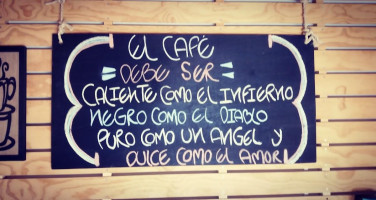 EL CAFÉ
"DEBE SER"
CALIENTE COMO EL INFIERNO
NEGRO COMO EL DIABLO
PURO COMO UN ANGEL Y
DULCE COMO EL AMOR